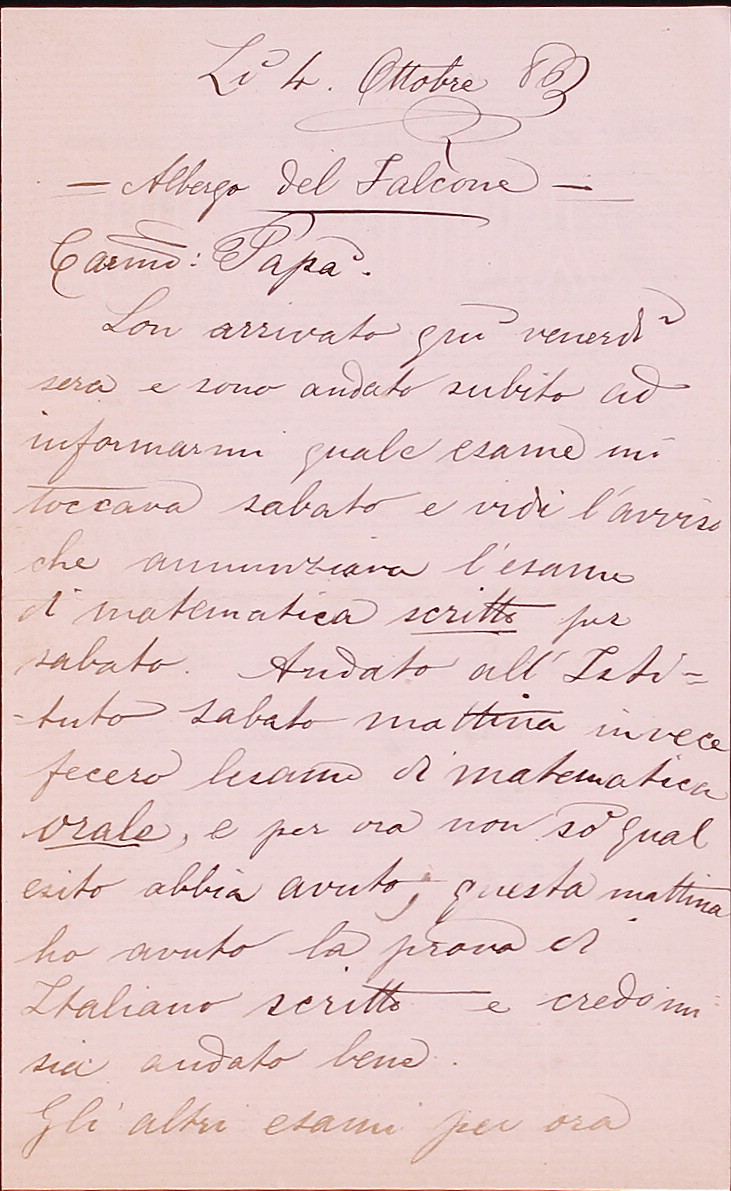 Li 4. Ottobre 86
- Albergo del Falcone -
Carmo: Papà.
Son arrivato quì venerdì
sera e sono andato subito ad
informarmi quale esame mi
toccava sabato e vidi l'avviso
che annunziava l'esame
di matematica scritto per
sabato. Andato all'Isti=
=tuto sabato mattina invece
fecero lesame di matematica
orale, e per ora non sò qual
esito abbia avuto; questa mattina
ho avuto la prova di
Italiano scritto e credo mi
sia andato bene.
Gli altri esami per ora